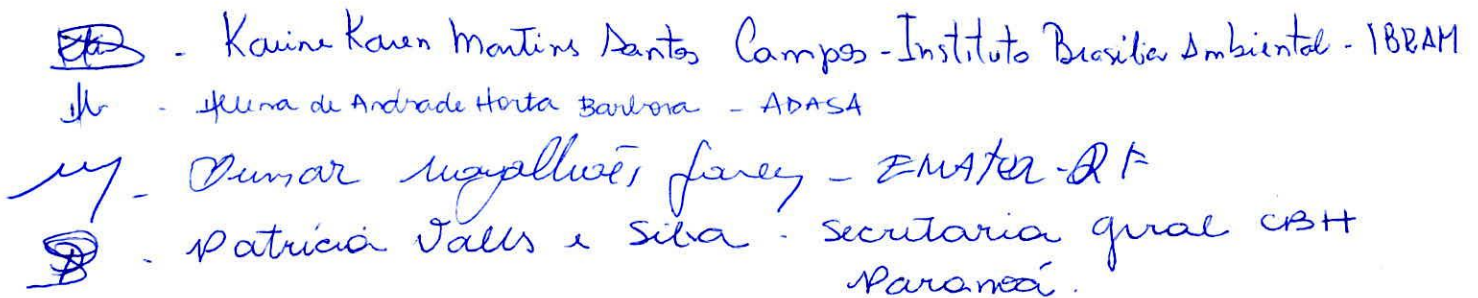 - Karine Karen Martins Santos Campos - Instituto Brasília Ambiental - IBRAM
- Helena de Andrade Horta Barbosa - ADASA
- Magalhães - EMATER-DF
- Patrícia Valls e Silva - secretaria geral CBH
Paranoá.